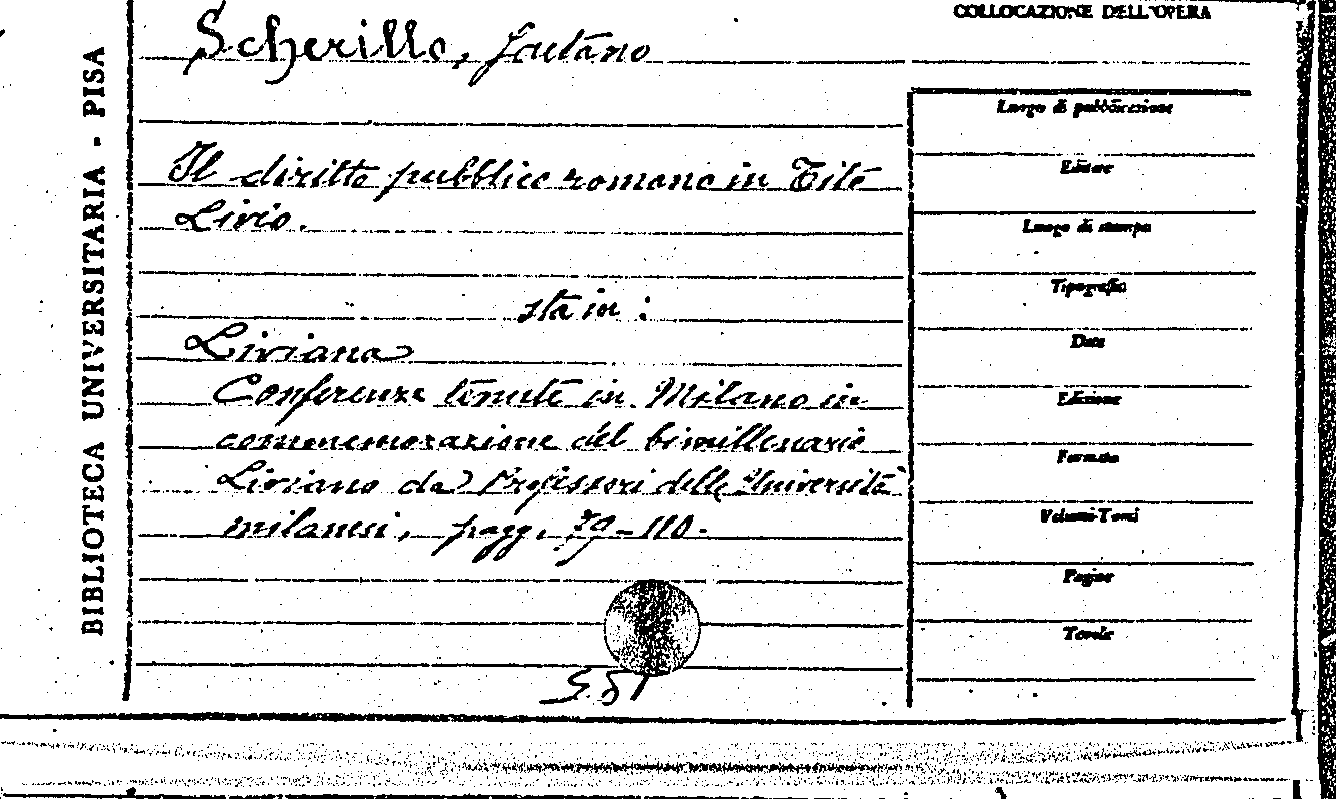 BIBLIOTECA UNIVERSITARIA - PISA
COLLOCAZIONE DELL'OPERA
Scherillo, Gaetano
Il diritto pubblico romano in Tito
Livio.
sta in :
Liviana
Conferenze tenute in Milano in
commemorazione del bimillenario
Liviano da Professori delle Università
milanesi, pagg. 79-110.
Luogo di pubblicazione
Editore
Luogo di stampa
Tipografia
Data
Edizione
Formato
Volumi-Tomi
Pagine
Tavole